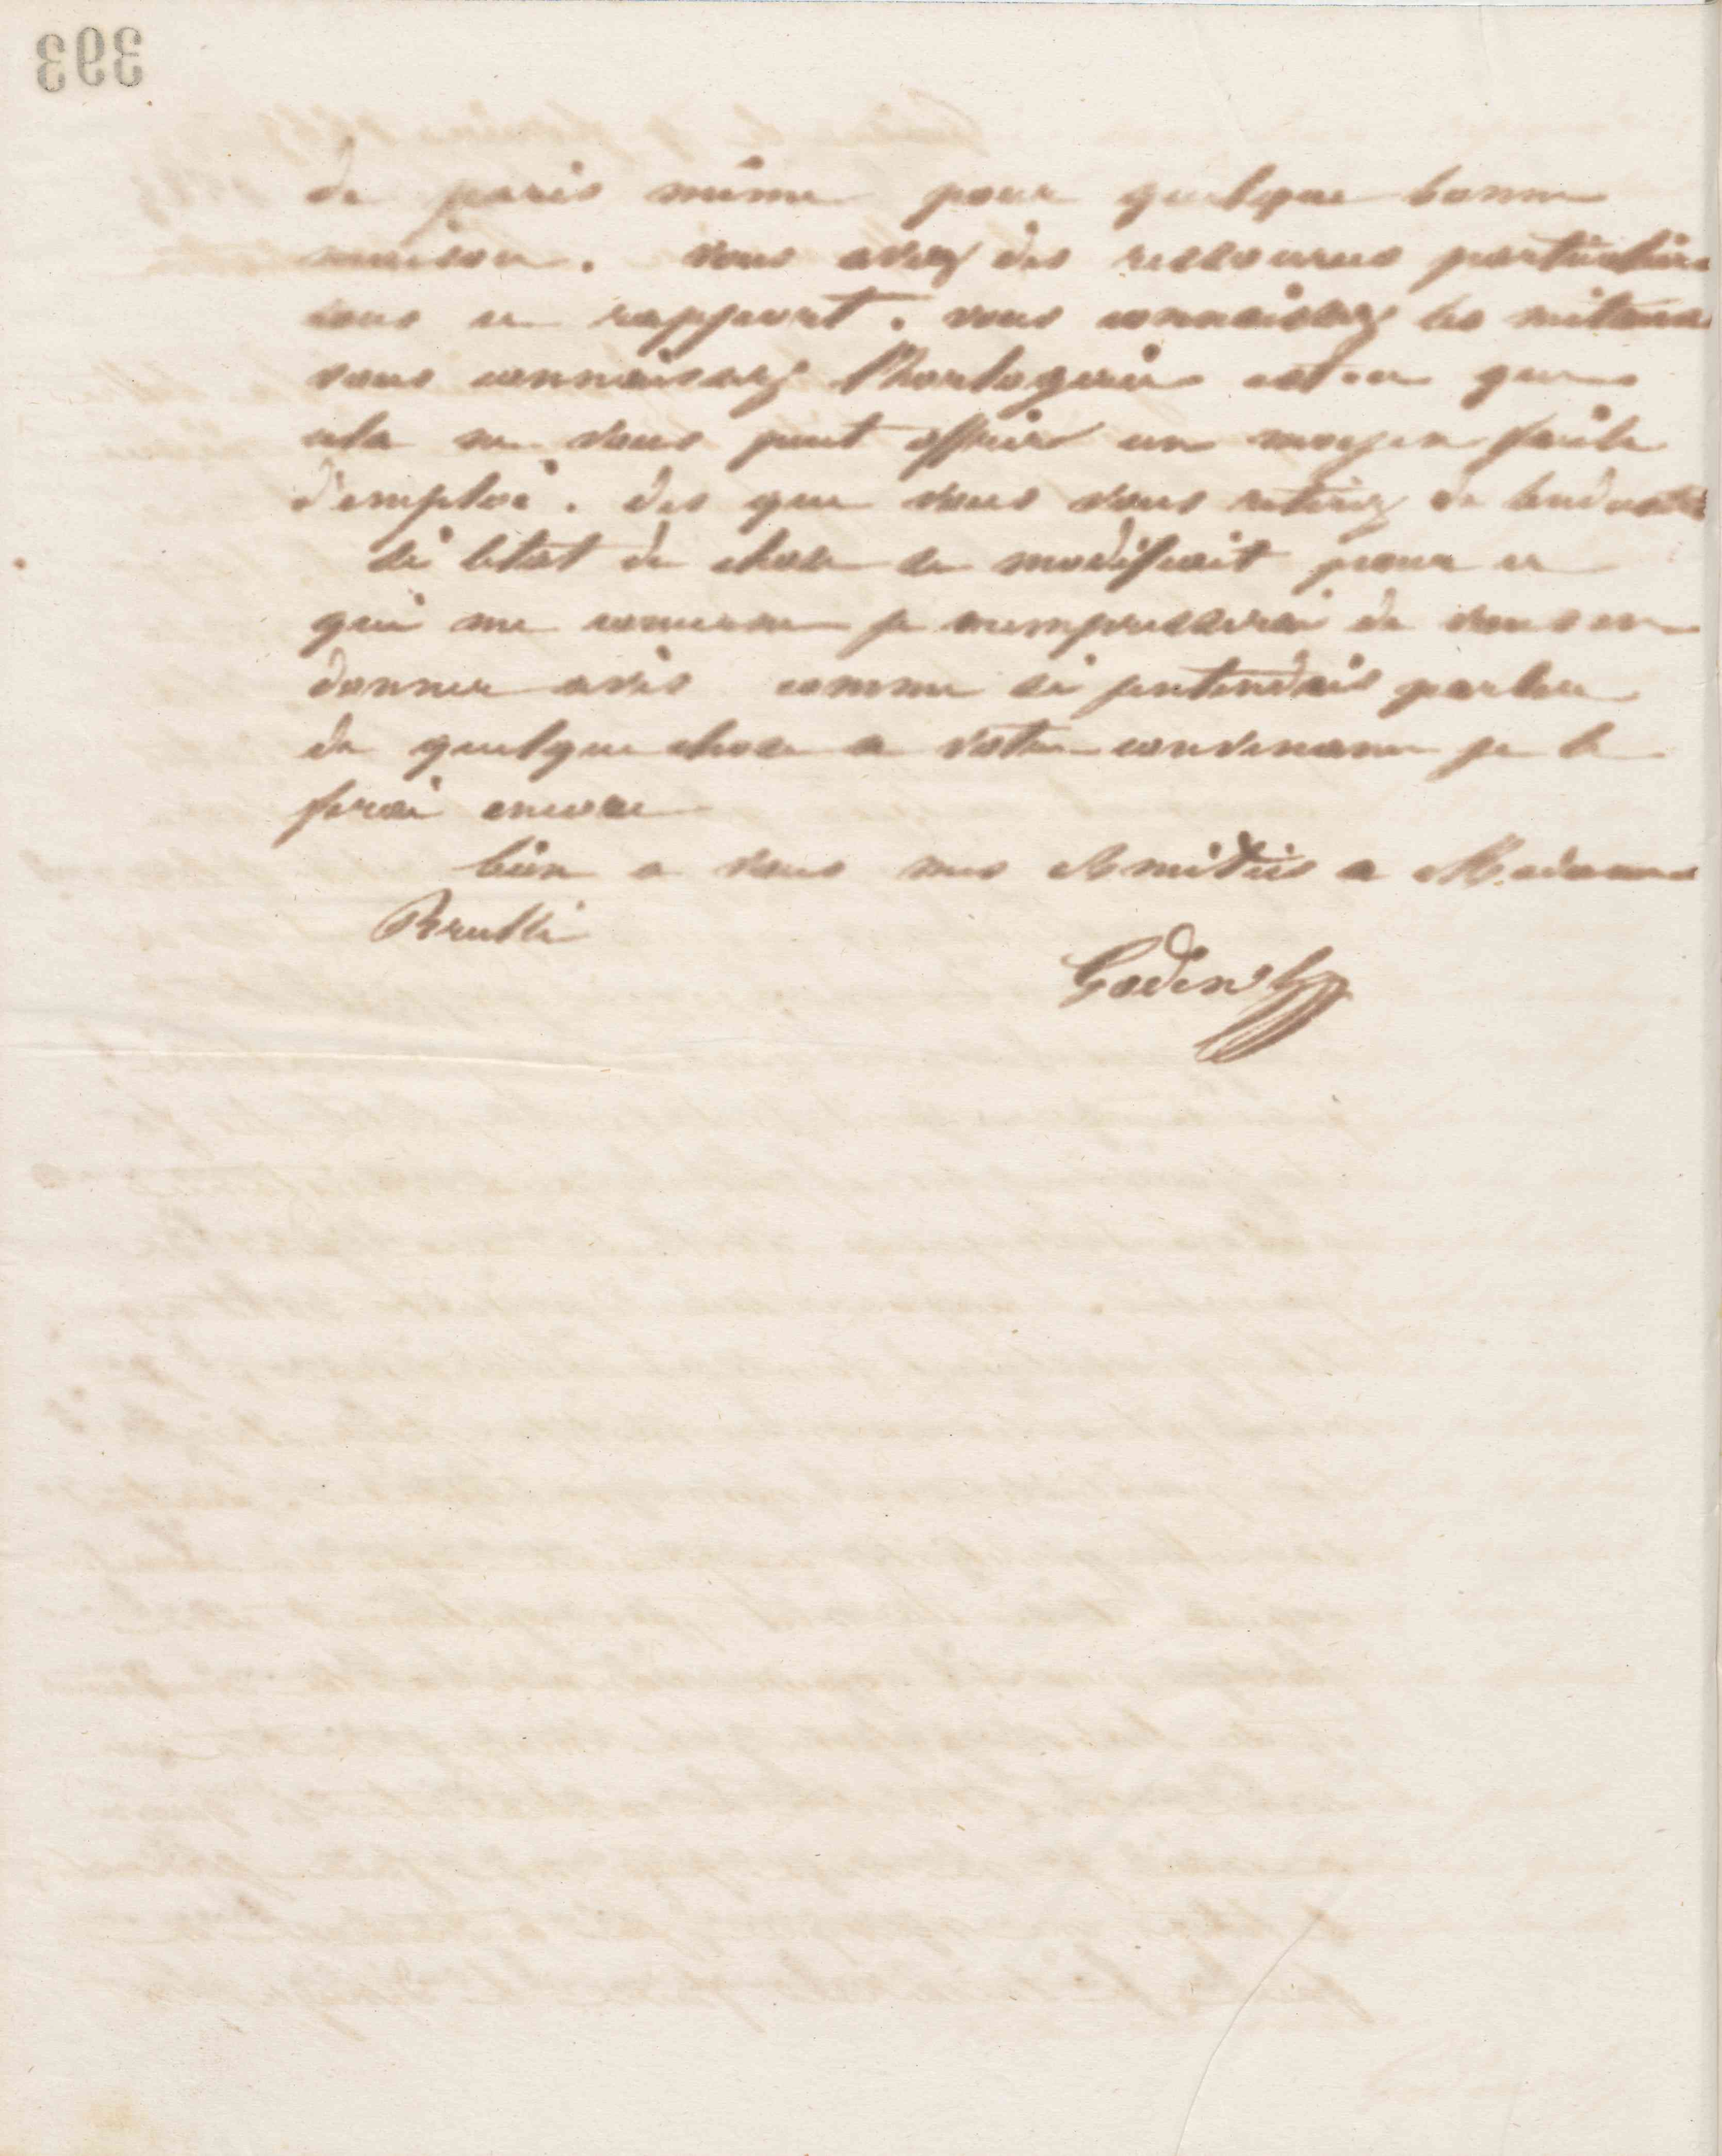 393
de paris même pour quelque bonne
maison. vous avez des ressources particulière
sous ce rapport. vous connaissez les métaux
vous connaissez l'horlogerie est ce que
cela ne vous peut offrir un moyen facile
d'emploi. des que vous vous retirez de
si letat de chose se modifiait pour ce
qui me concerne je mempresserai de vous en
donner avis comme si jentendais parler
de quelque chose a votre convenance je le
ferai encore
bien a vous mes Amitiés a Madame
Brullé
Godin